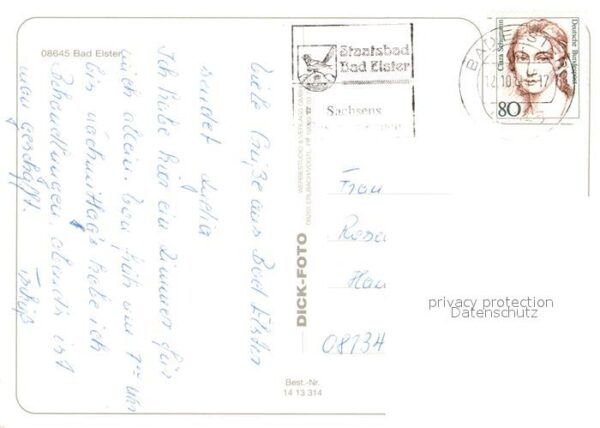 08645 Bad Elster
Viele Grüße aus Bad Elster
sendet Lydia
Ich habe hier ein Zimmer für
mich allein. Von früh um 7⁰⁰ Uhr
bis nachmittags habe ich
Behandlungen, abends ist
man geschafft.
Tschüß
WERBESTUDIO & VERLAGS GMBH
DICK-FOTO
Best.-Nr.
14 13 314
Staatsbad
Bad Elster
Sachsens
BAD ELSTER
12.10.9
Clara Schumann
Deutsche Bundespost
80
Frau
Rosa
Han
08134
privacy protection
Datenschutz